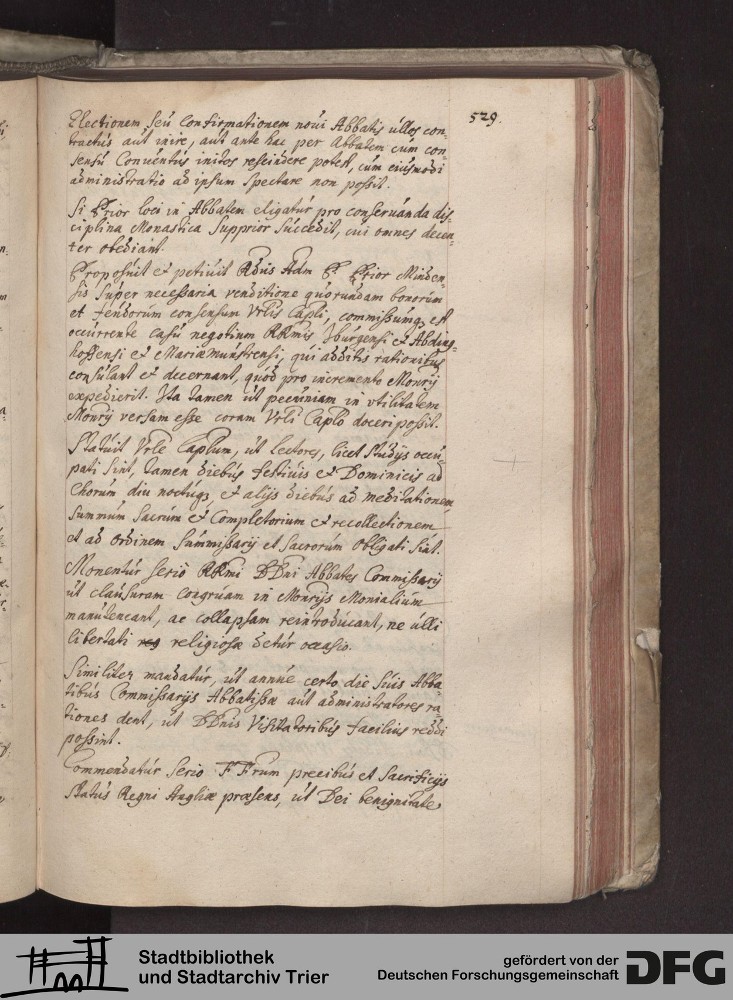 529.
Electionem seu confirmationem novi Abbatis ullos con-
tractus aut inire, aut ante hac per Abbatem cum con-
sensu Conventus initos rescindere potest, cum eiusmodi
administratio ad ipsum spectare non possit.
Si Prior loci in Abbatem eligatur pro conservanda dis-
ciplina Monastica Supprior succedit, cui omnes decen-
ter obediant.
Proposuit et petivit Rdus Adm P. Prior Minden-
sis super necessaria venditione quorundam bonorum
et feudorum consensum Vrlis Capli, commissumq; est
occurrente casu negotium RRmis Iburgensi et Abding-
hoffensi et Mariæmunstrensi, qui additis rationibus
consulant et decernant, quod pro incremento Monrij
expedierit. Ita tamen ut pecuniam in utilitatem
Monrij versam esse coram Vrli Caplo doceri possit.
Statuit Vrle Caplum, ut lectores, licet studijs occu-
pati sint, tamen diebus festivis et Dominicis ad
Chorum diu noctuq;, et alijs diebus ad meditationem
summum sacrum et Completorium et recollectionem
et ad ordinem summissarij et sacrorum obligati sint.
Monentur serio RRmi DDni Abbates Commissarij
ut clausuram congruam in Monrijs Monialium
manuteneant, ac collapsam reintroducant, ne ulli
libertati religiosæ detur occasio.
Similiter mandatur, ut annue certo die suis Abba-
tibus Commissarijs Abbatissæ aut administratores ra-
tiones dent, ut DDnis Visitatoribus facilius reddi
possint.
Commendatur serio FFrum precibus et Sacrificijs
status Regni Angliæ præsens, ut Dei benignitate
Stadtbibliothek
und Stadtarchiv Trier
gefördert von der
Deutschen Forschungsgemeinschaft
DFG